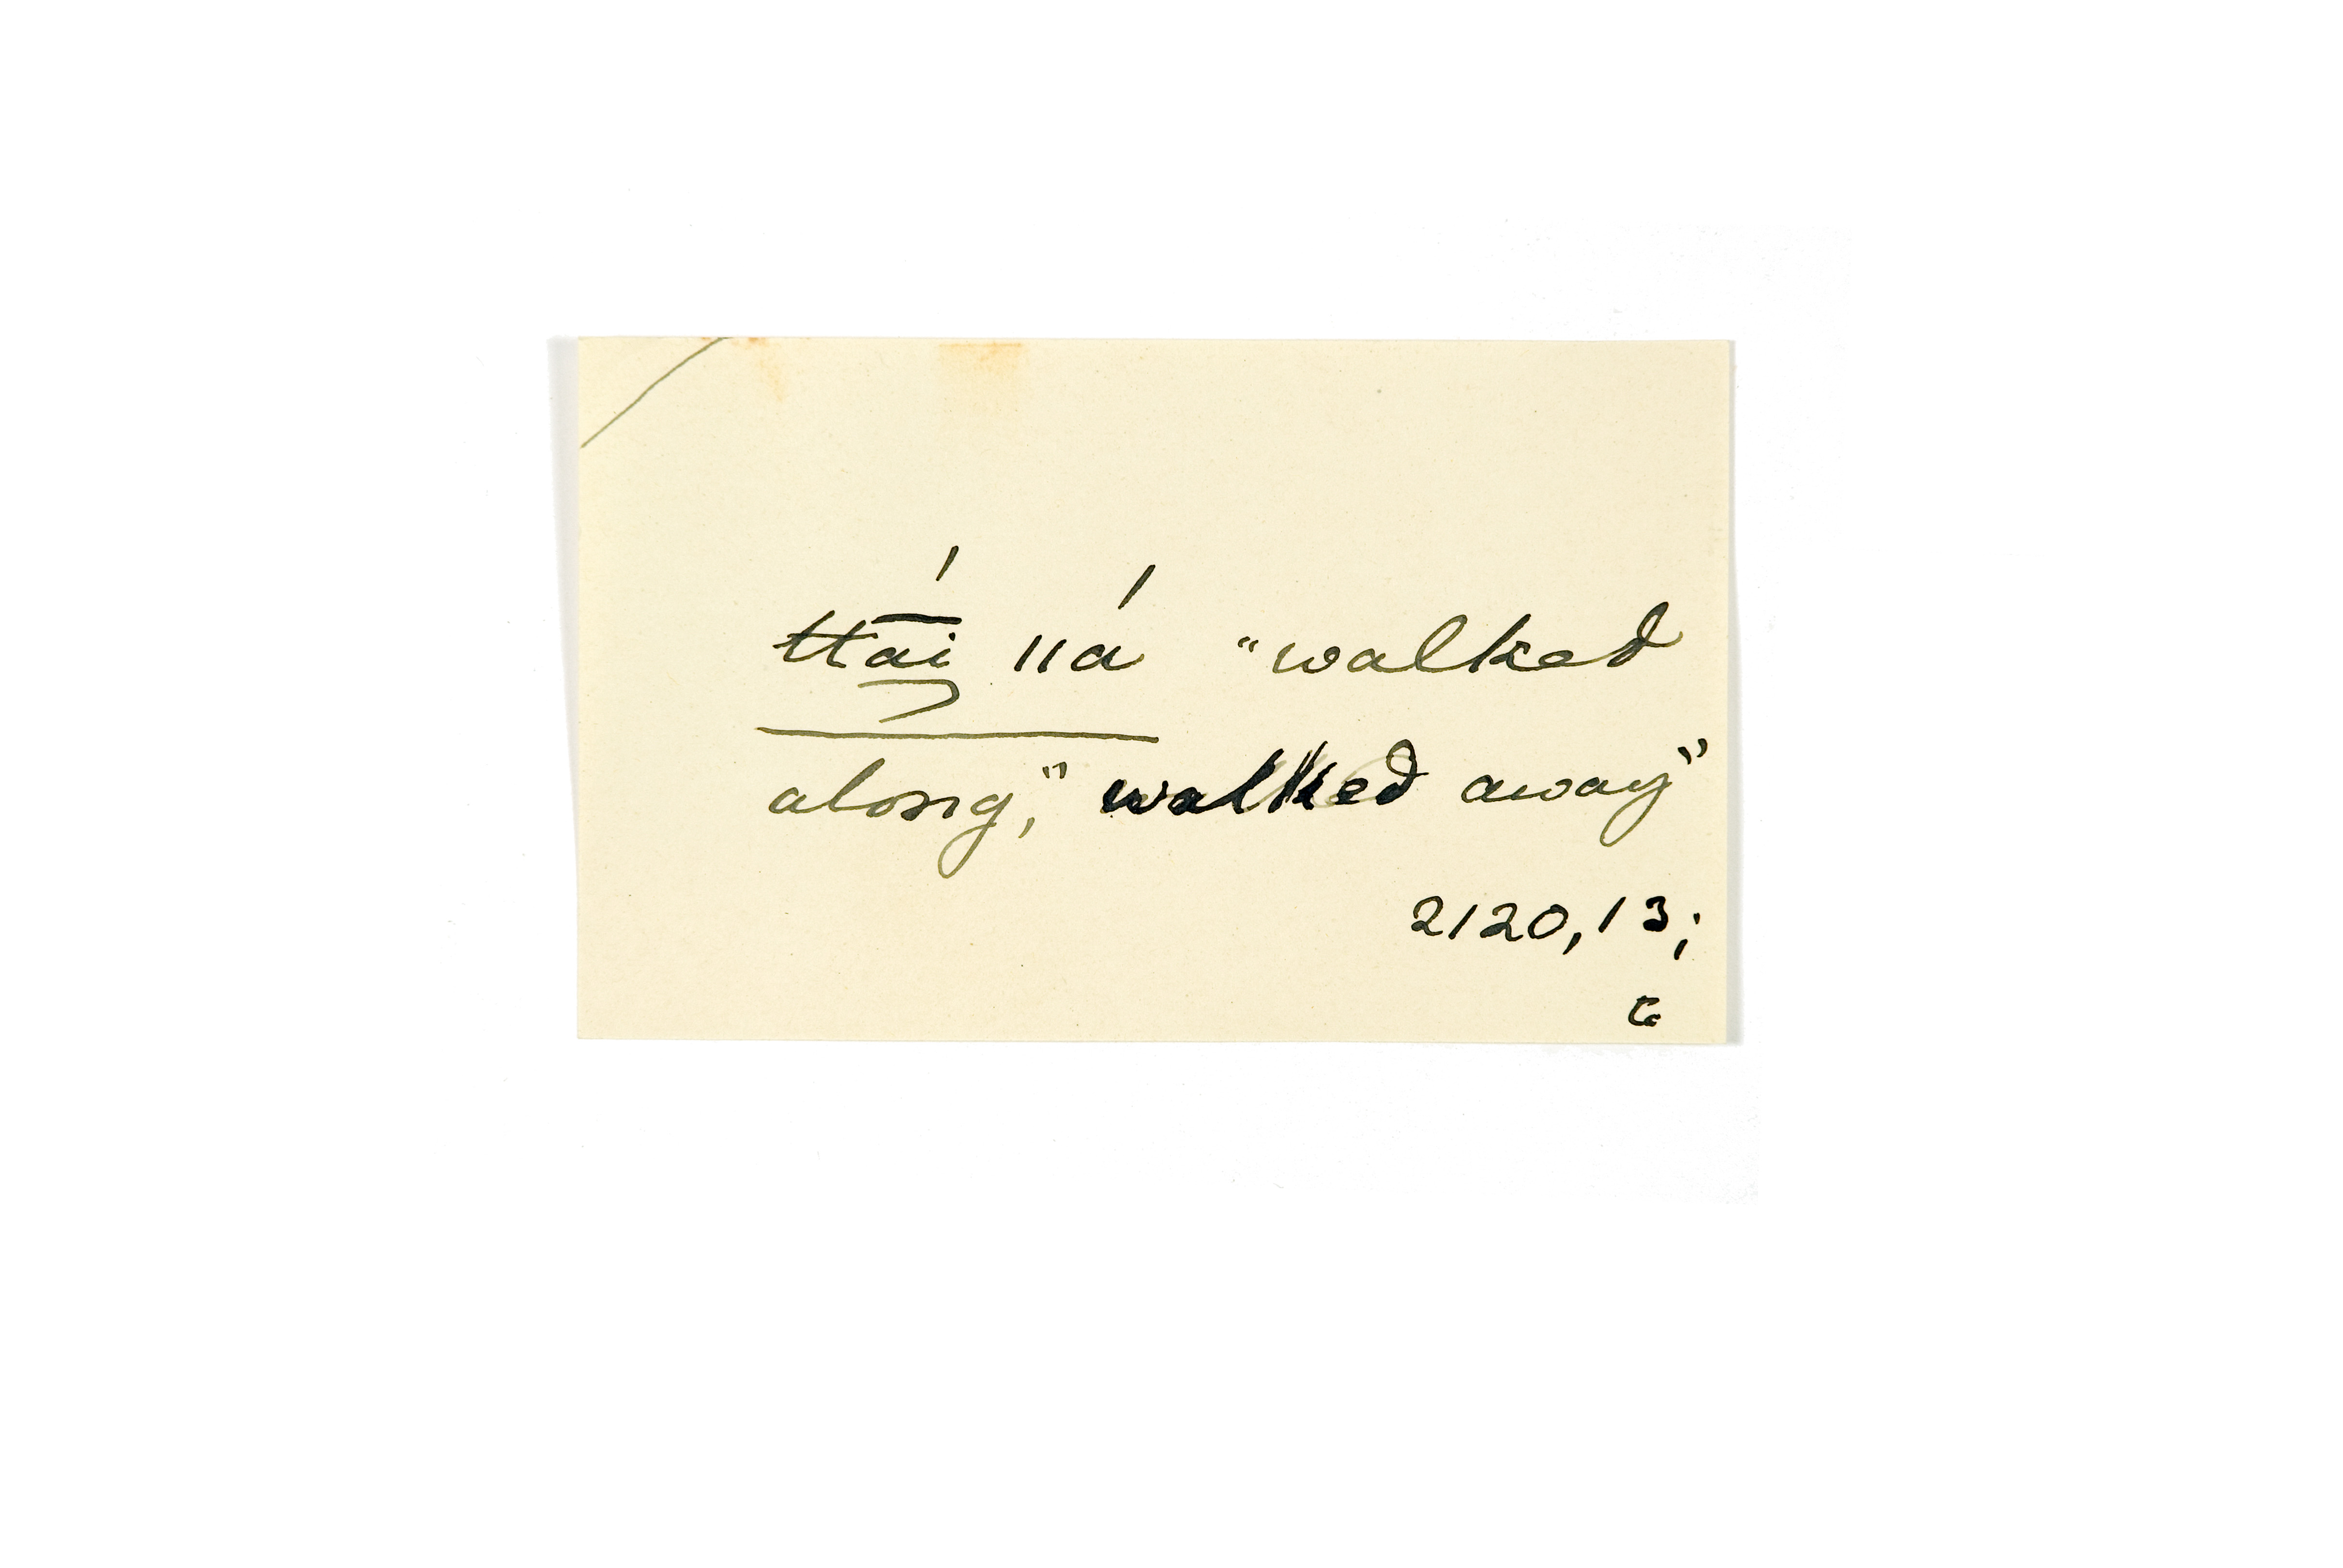 ttā́i ııá "walked
along," walked away"
2120,13;